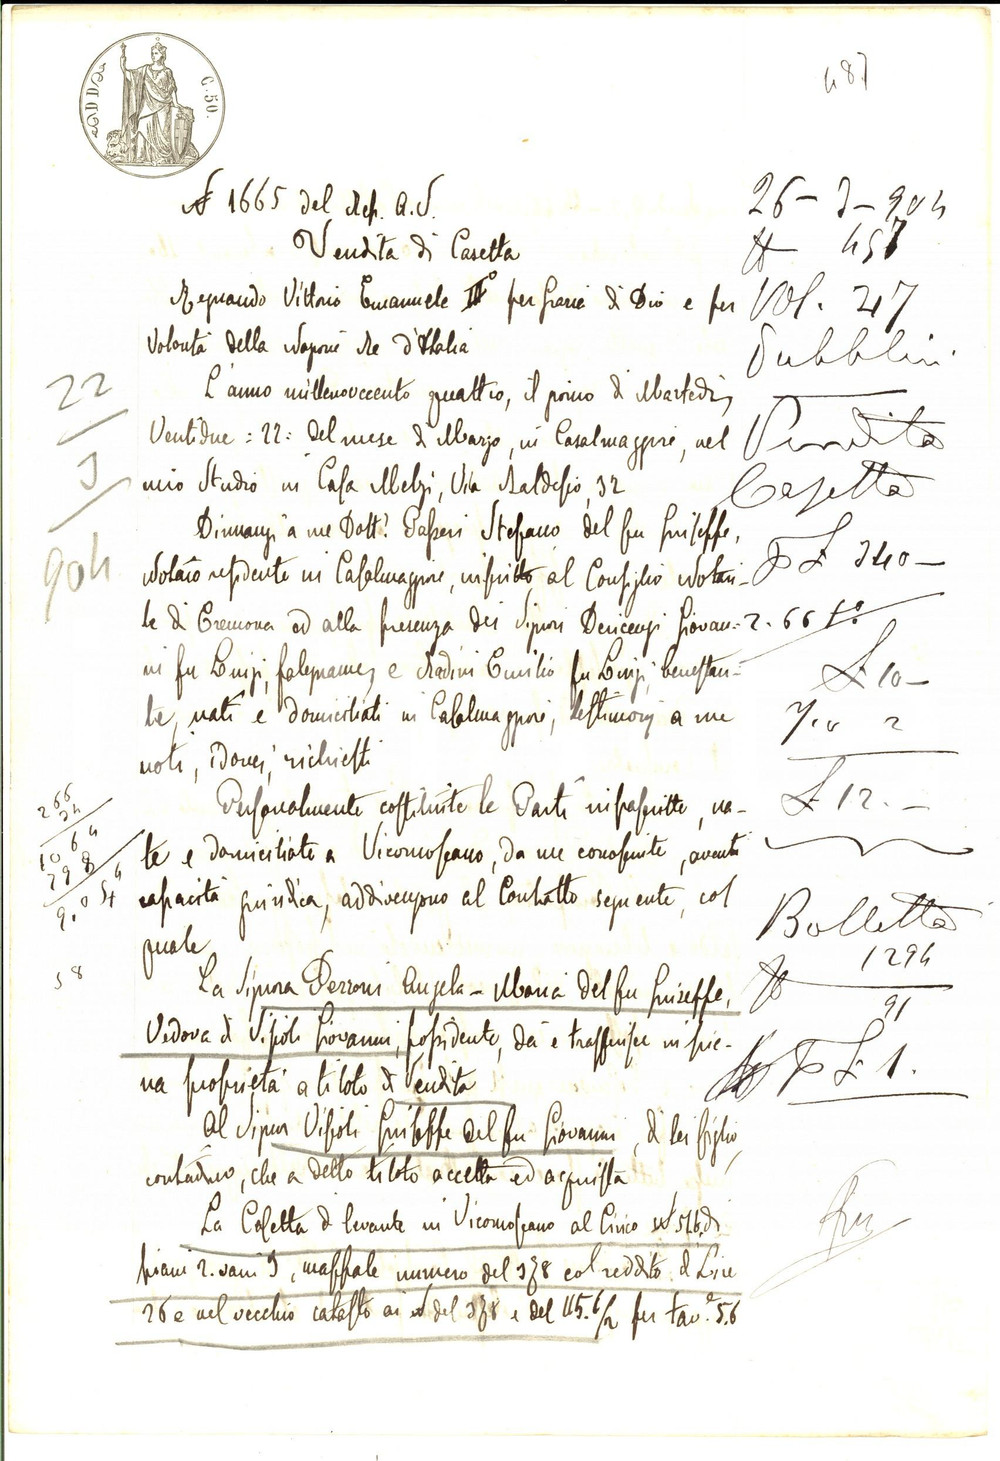 C. 50.
N 1665 del Rep. A.V.
Vendita di Casetta
Regnando Vittorio Emanuele III° per Grazia di Dio e per
Volontà della Nazione Re d'Italia
L'anno millenovecento quattro, il giorno di Martedì,
Ventidue =22= del mese di Marzo, in Casalmaggiore, nel
mio Studio in Casa Melzi, Via Baldesio, 32
Dinnanzi a me Dott. Passeri Stefano del fu Giuseppe,
Notaio residente in Casalmaggiore, inscritto al Consiglio Notari-
le di Cremona ed alla presenza dei Signori Giovan=
ni fu Luigi, falegname, e Radini Emilio fu Luigi, benestan=
te, nati e domiciliati in Casalmaggiore, testimonj a me
noti, idonei, richiesti
Personalmente costituite le Parti infrascritte, na-
te e domiciliate a Vicomoscano, da me conosciute, aventi
capacità giuridica, addivengono al Contratto seguente, col
quale
La Signora Perroni Angela-Maria del fu Giuseppe,
Vedova di Visioli Giovanni, possidente, dà e trasferisce in pie-
na proprietà a titolo di Vendita
Al Signor Visioli Giuseppe del fu Giovanni, di lei figlio,
contadino, che a detto titolo accetta ed acquista
La Casetta di levante in Vicomoscano al Civico N 516. di
piani 2. vani 3, mappale numero del 378 col reddito di Lire
26 e nel vecchio catasto ai N del 378 e del 115.6/2 per tav.e 5.6
487
26-3-904
N 457
Vol. 247
Pubblici
Vendita
Casetta
£ 340-
2.66
£ 10-
2
£ 12.-
Bolletta
N 1294
91
£ 1.
22
3
904
266
34
1064
798
9.054
58